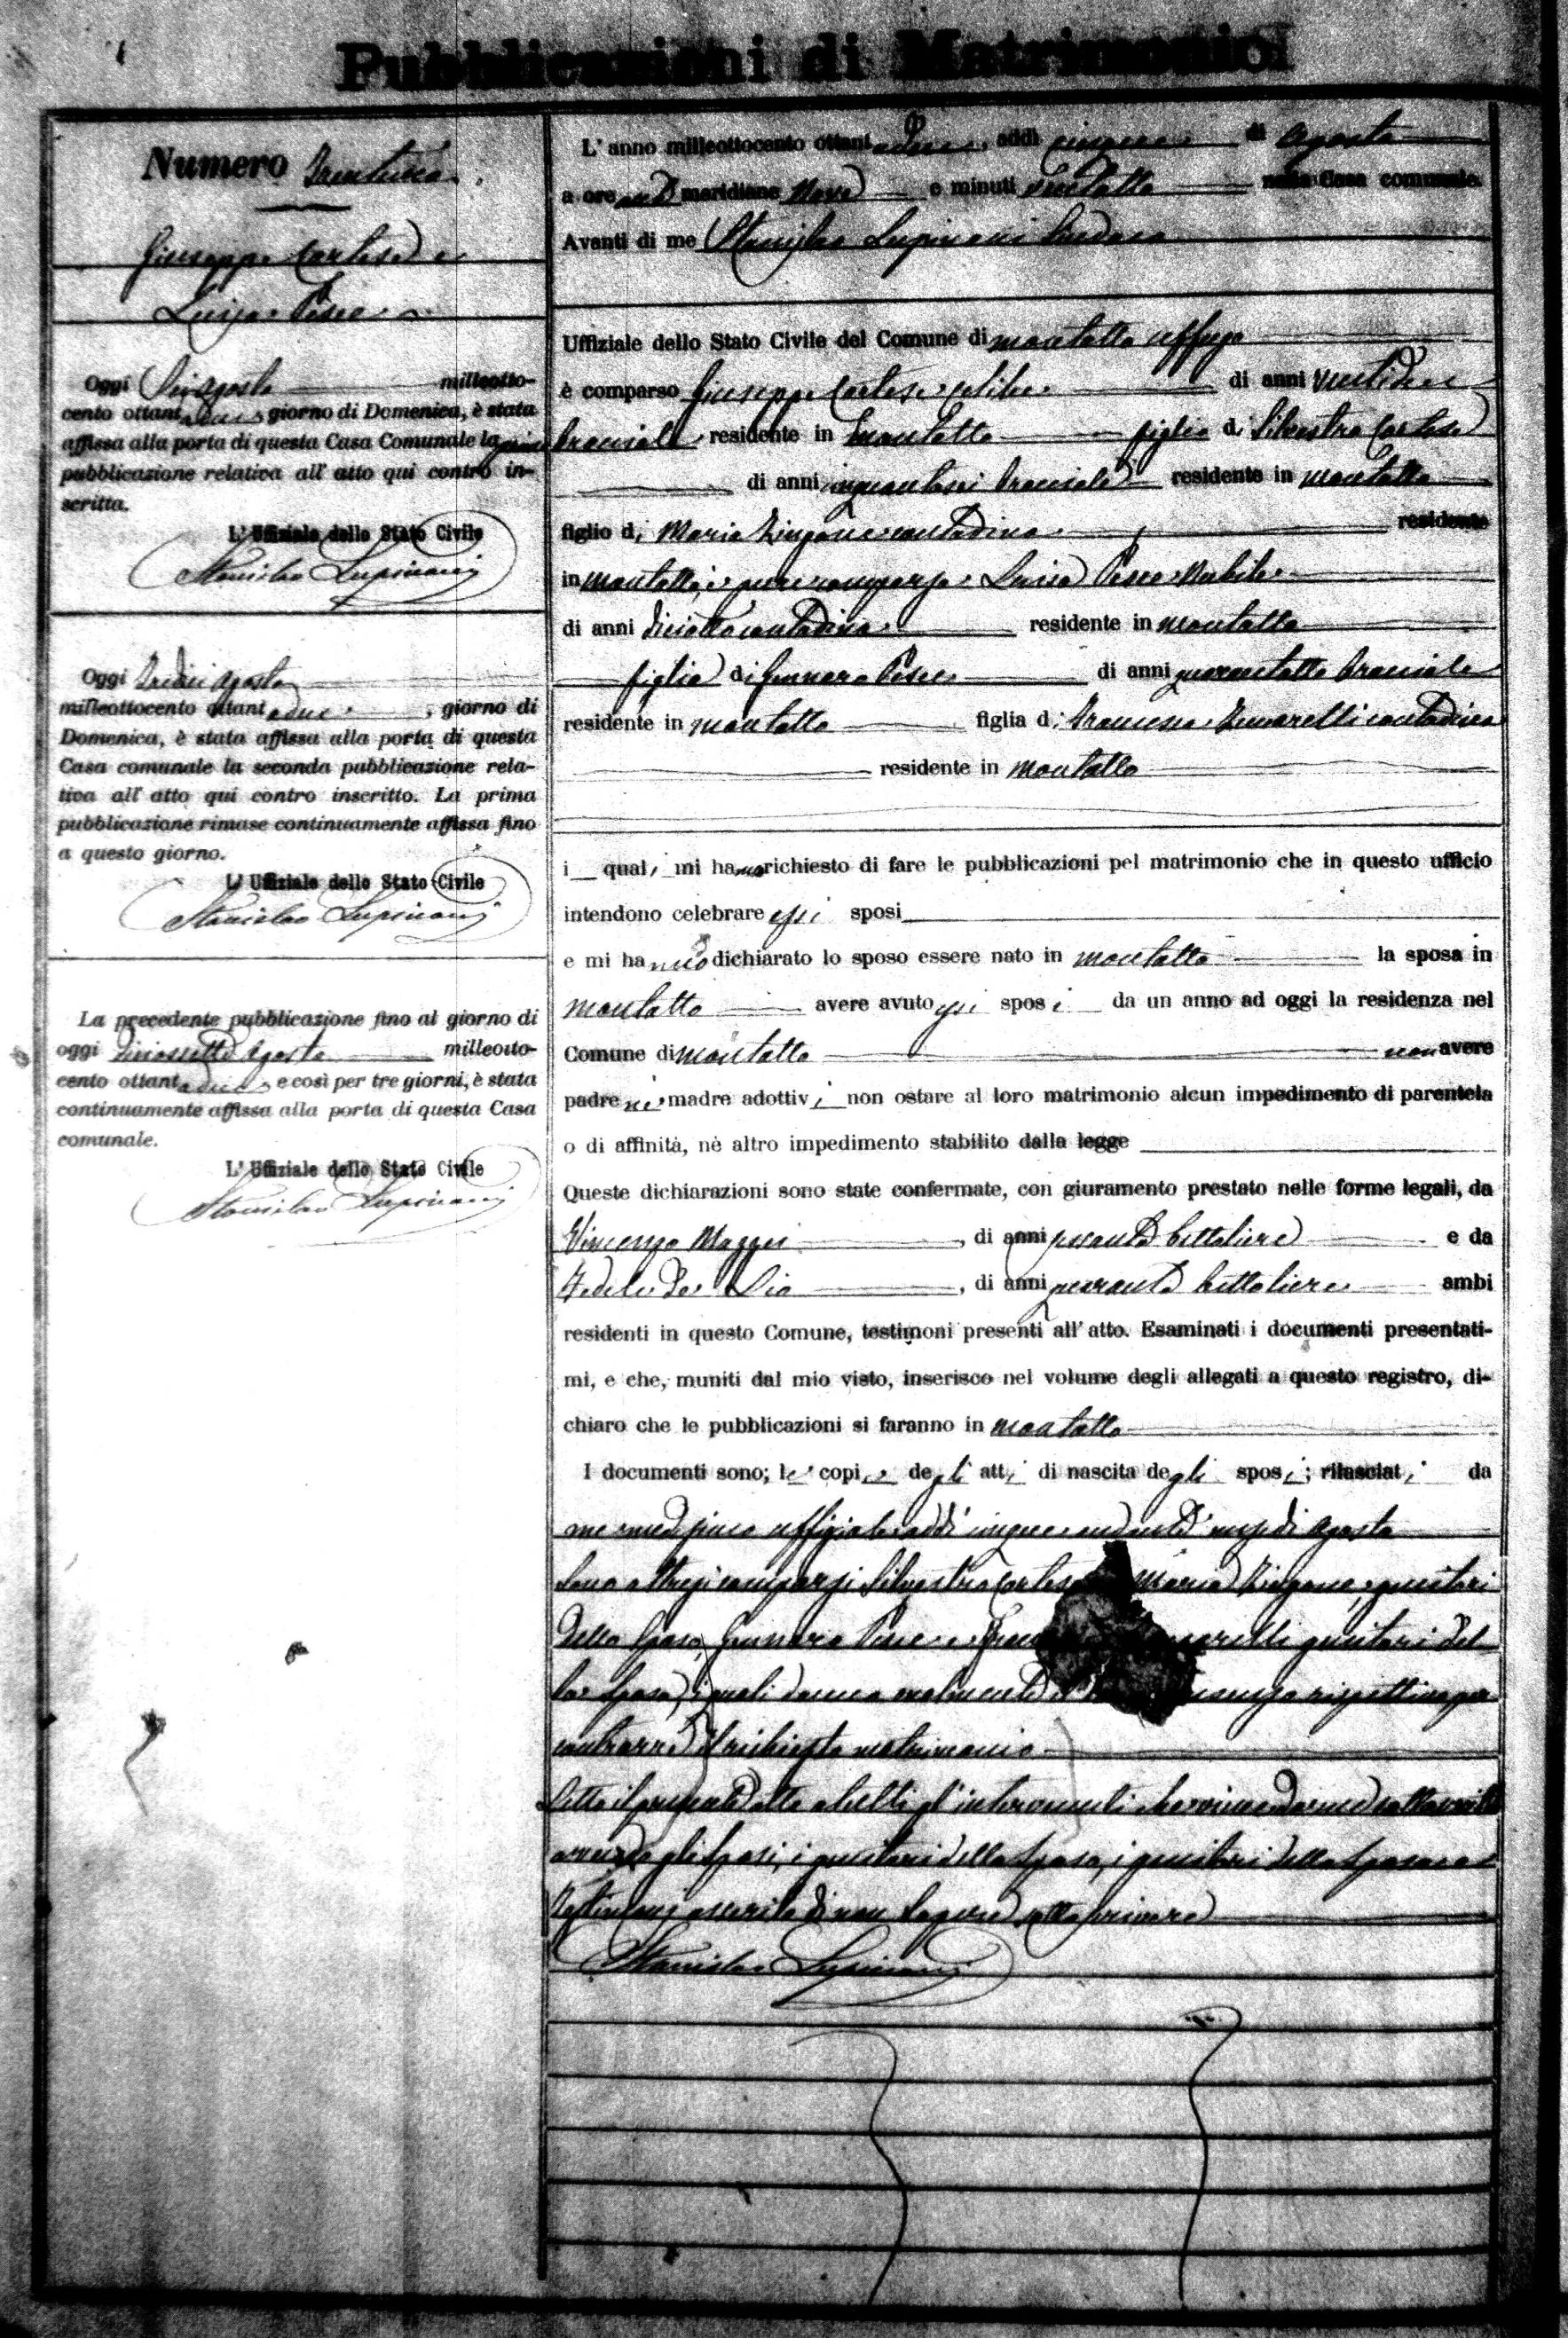 Pubblicazioni di Matrimonio
Numero Trentuno
Giuseppe Cortese e
Luisa Pesce
Oggi Sei Agosto milleotto-
cento ottantadue giorno di Domenica, è stata
affissa alla porta di questa Casa Comunale la prima
pubblicazione relativa all' atto qui contro in-
scritto.
L' Uffiziale dello Stato Civile
Stanislao Lupinacci
Oggi Tredici Agosto
milleottocento ottantadue, giorno di
Domenica, è stata affissa alla porta di questa
Casa comunale la seconda pubblicazione rela-
tiva all' atto qui contro inscritto. La prima
pubblicazione rimase continuamente affissa fino
a questo giorno.
L' Uffiziale dello Stato Civile
Stanislao Lupinacci
La precedente pubblicazione fino al giorno di
oggi diciassette Agosto milleotto-
cento ottantadue e così per tre giorni, è stata
continuamente affissa alla porta di questa Casa
comunale.
L' Uffiziale dello Stato Civile
Stanislao Lupinacci
L' anno milleottocento ottantadue, addì cinque di Agosto
a ore anti meridiane Nove e minuti ventotto nella Casa comunale.
Avanti di me Stanislao Lupinacci Sindaco
Uffiziale dello Stato Civile del Comune di Montalto Uffugo
è comparso Giuseppe Cortese celibe di anni ventidue
bracciale residente in Montalto figlio di Silvestro Cortese
di anni cinquantasei bracciale residente in Montalto
figlio di Maria Zingone contadina residente
in Montalto, è pure comparsa Luisa Pesce Nubile
di anni diciotto contadina residente in Montalto
figlia di Gennaro Pesce di anni quarantotto bracciale
residente in Montalto figlia di Francesca contadina
residente in Montalto
i quali mi hanno richiesto di fare le pubblicazioni pel matrimonio che in questo ufficio
intendono celebrare essi sposi
e mi hanno dichiarato lo sposo essere nato in Montalto la sposa in
Montalto avere avuto essi sposi da un anno ad oggi la residenza nel
Comune di Montalto non avere
padre nè madre adottivi non ostare al loro matrimonio alcun impedimento di parentela
o di affinità, nè altro impedimento stabilito dalla legge
Queste dichiarazioni sono state confermate, con giuramento prestato nelle forme legali, da
Vincenzo di anni bettoliere e da
Fedele De Dio, di anni quaranta bettoliere ambi
residenti in questo Comune, testimoni presenti all' atto. Esaminati i documenti presentati-
mi, e che, muniti dal mio visto, inserisco nel volume degli allegati a questo registro, di-
chiaro che le pubblicazioni si faranno in Montalto
I documenti sono; le copie degli atti di nascita degli sposi; rilasciati da
me medesimo uffiziale addì cinque andante mese di Agosto
Sono altresì comparsi Silvestro Cortese Maria Zingone, genitori
dello Sposo, Gennaro Pesce e genitori del
la Sposa, i quali danno rispettivo per
contrarre il richiesto matrimonio
Letto il presente atto a tutti gl'intervenuti
gli Sposi, i genitori dello Sposo, i genitori della Sposa e i
Testimoni asserito di non sapere sottoscrivere
Stanislao Lupinacci